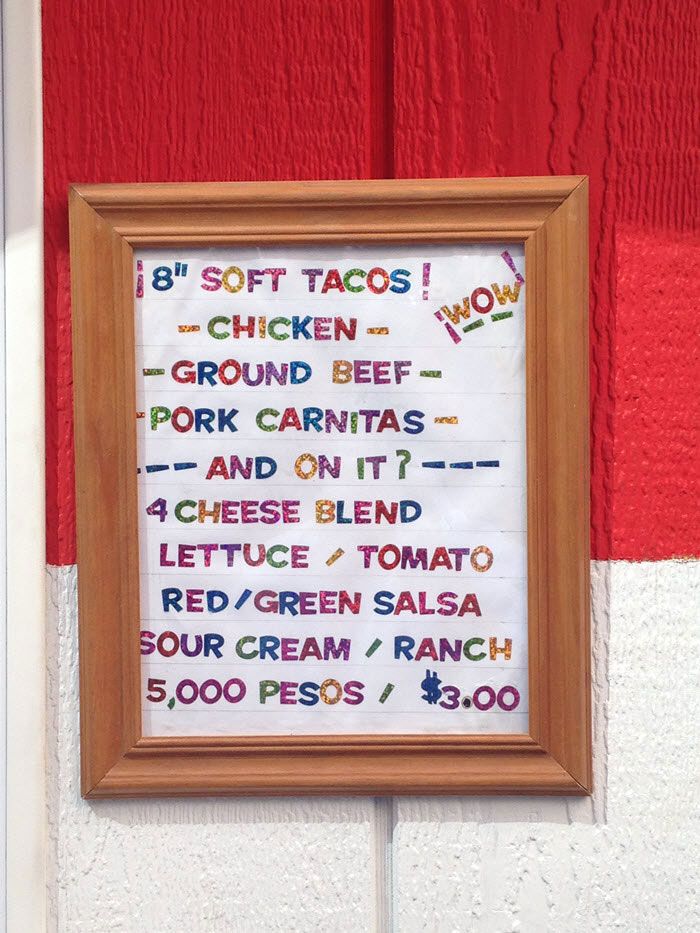 ¡8" SOFT TACOS!
¡WOW!
- CHICKEN -
- GROUND BEEF -
- PORK CARNITAS -
--- AND ON IT? ---
4 CHEESE BLEND
LETTUCE / TOMATO
RED/GREEN SALSA
SOUR CREAM / RANCH
5,000 PESOS / $3.00